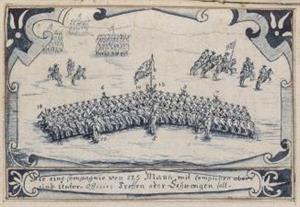 Wie eine Compagnie von 125 Mann, mit completten ober
und unter: Officirs Treffen oder Schwengen soll.